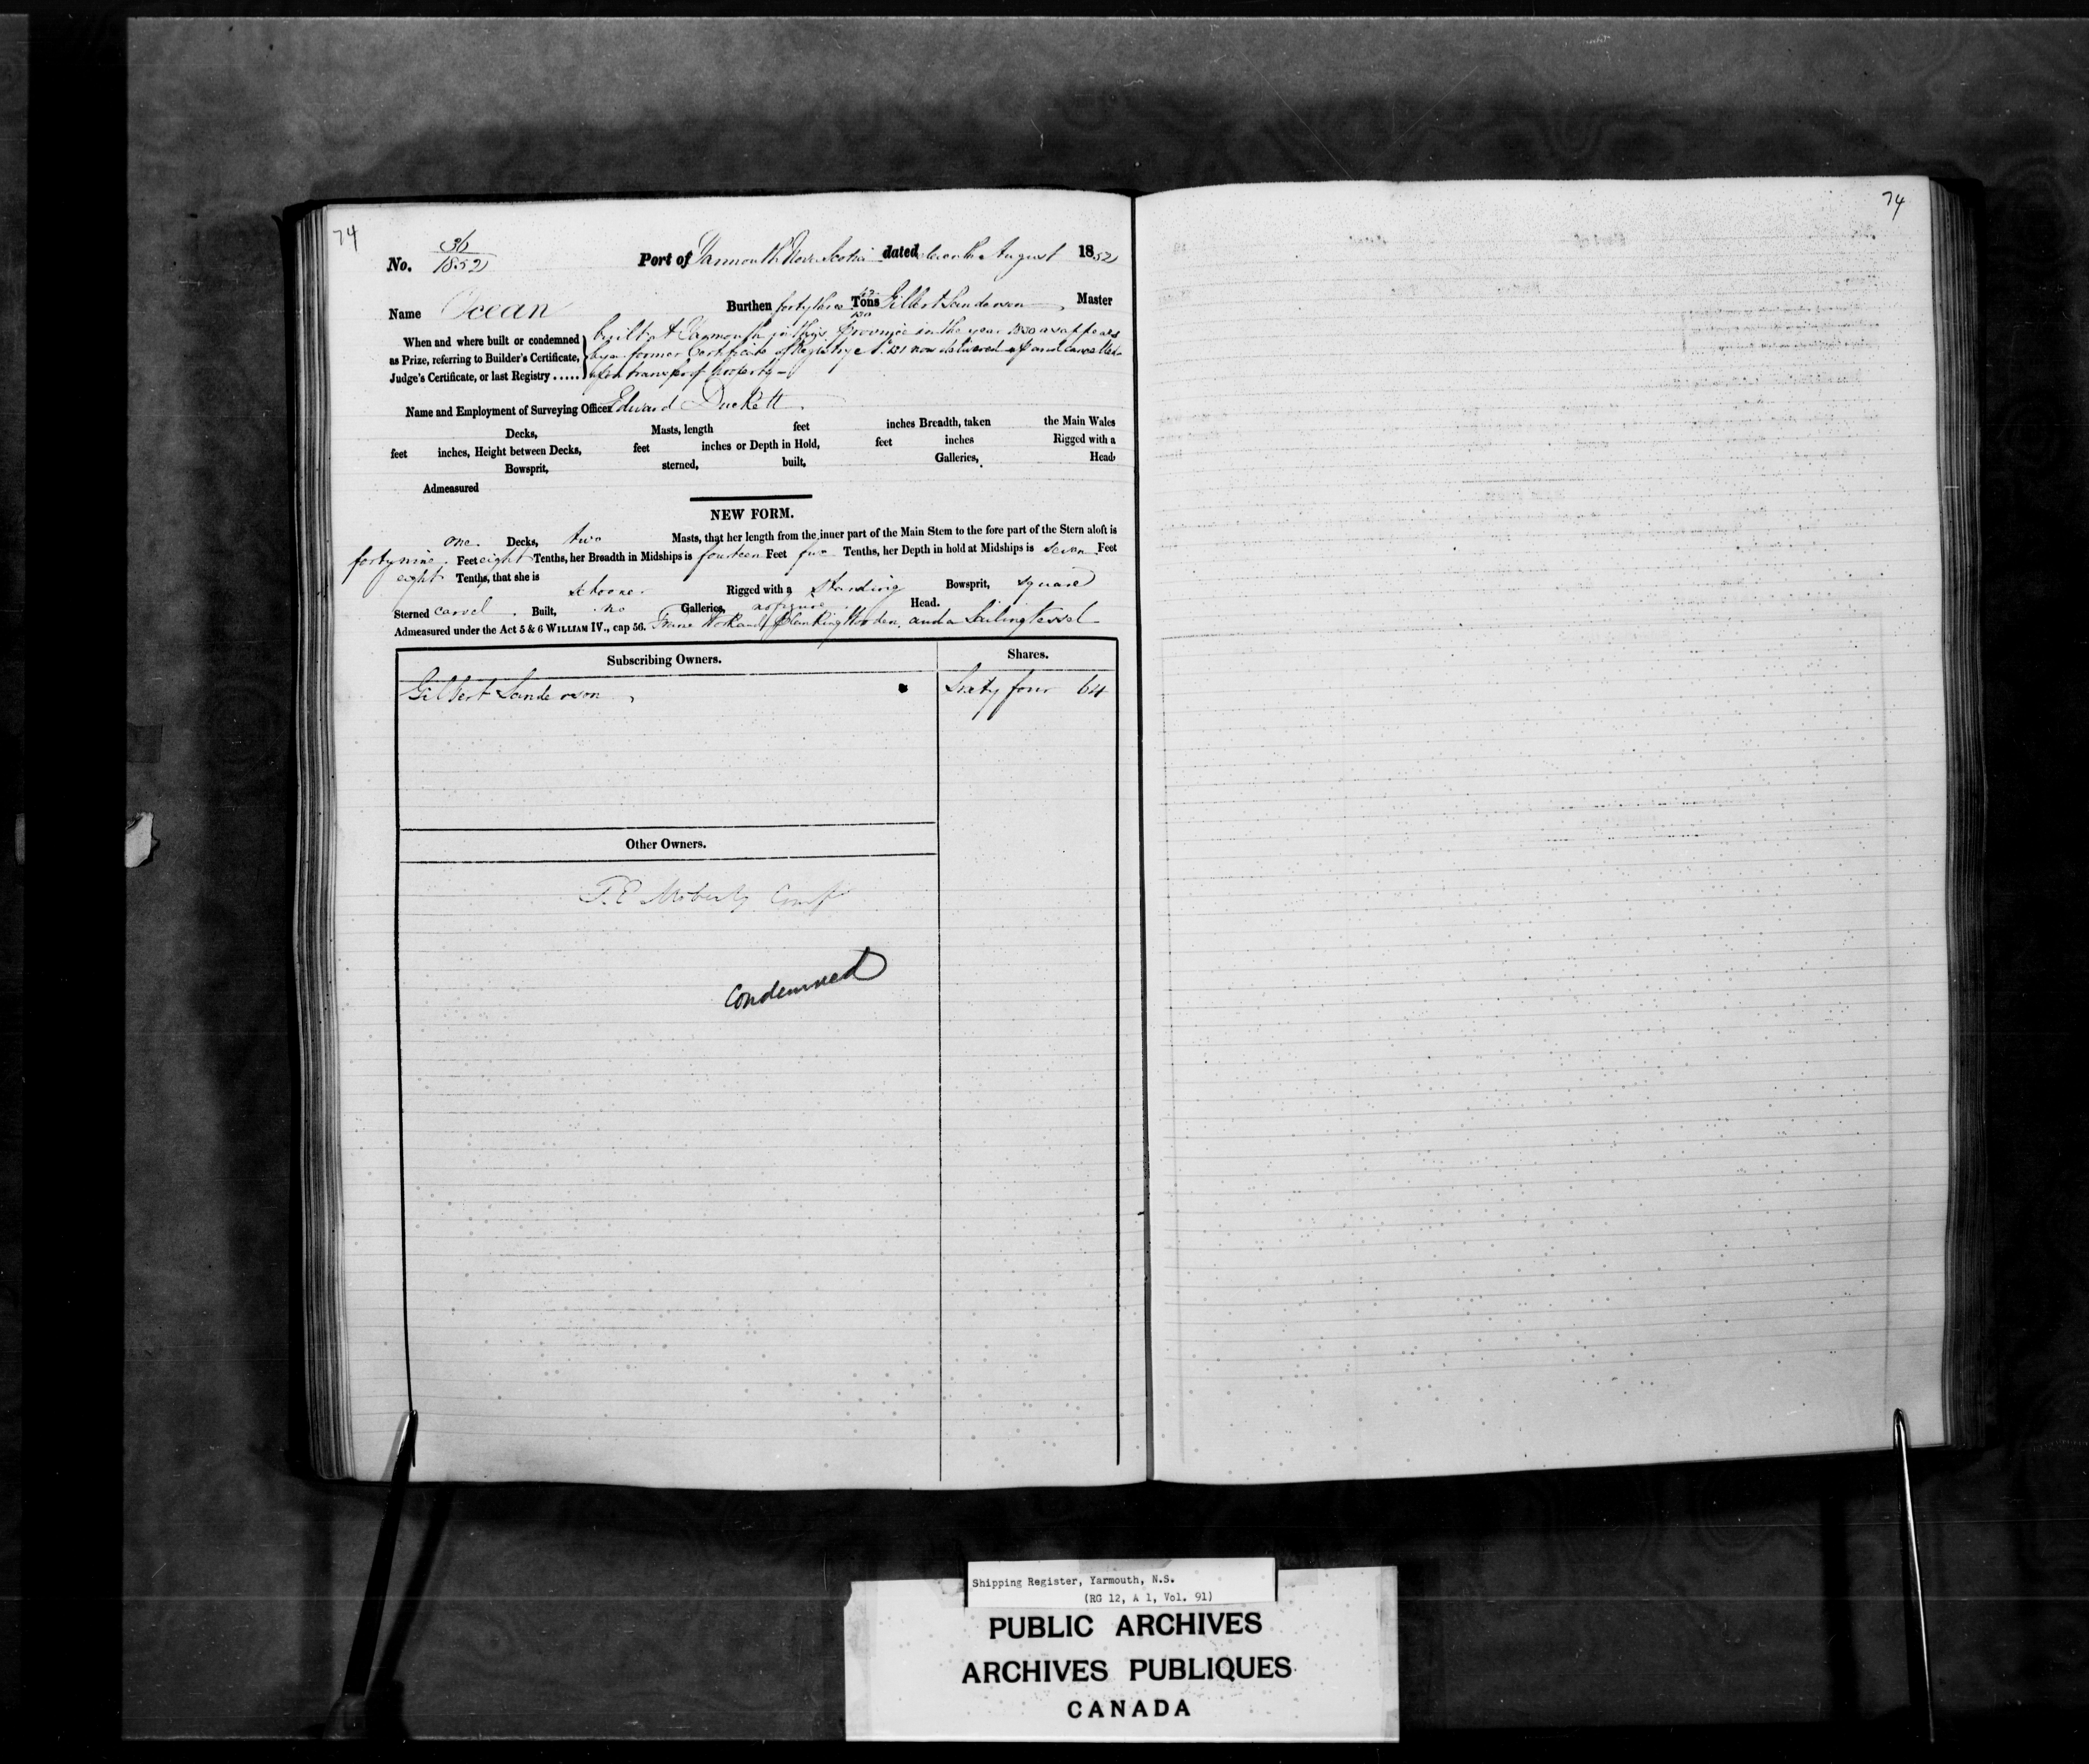 74
74
No. 36/1852 Port of Yarmouth Nova Scotia dated August 1852
Name Ocean Burthen forty three Tons Gilbert Sanderson, Master
When and where built or condemned as Prize, referring to Builder's Certificate, Judge's Certificate, or last Registry .....
built at Yarmouth in this Province in the year 1850 as appears
by a former Certificate of Registry No. 131 now delivered up and cancelled
upon transfer of property -
Name and Employment of Surveying Officer Edward Duckett
Decks, Masts, length feet inches Breadth, taken the Main Wales
feet inches, Height between Decks, feet inches or Depth in Hold, feet inches Rigged with a
Bowsprit, sterned, built, Galleries, Head,
Admeasured
NEW FORM.
one Decks, two Masts, that her length from the inner part of the Main Stem to the fore part of the Stern aloft is
forty nine Feet eight Tenths, her Breadth in Midships is fourteen Feet Tenths, her Depth in hold at Midships is seven Feet
eight Tenths, that she is schooner Rigged with a standing Bowsprit, square
Sterned carvel Built, no Galleries, no figure Head.
Admeasured under the Act 5 & 6 WILLIAM IV., cap 56. Frame Work and Planking Wooden, and a Sailing Vessel
Subscribing Owners. Shares.
Gilbert Sanderson, Sixty four 64
Other Owners.
Condemned
Shipping Register, Yarmouth, N.S.
(RG 12, A 1, Vol. 91)
PUBLIC ARCHIVES
ARCHIVES PUBLIQUES
CANADA